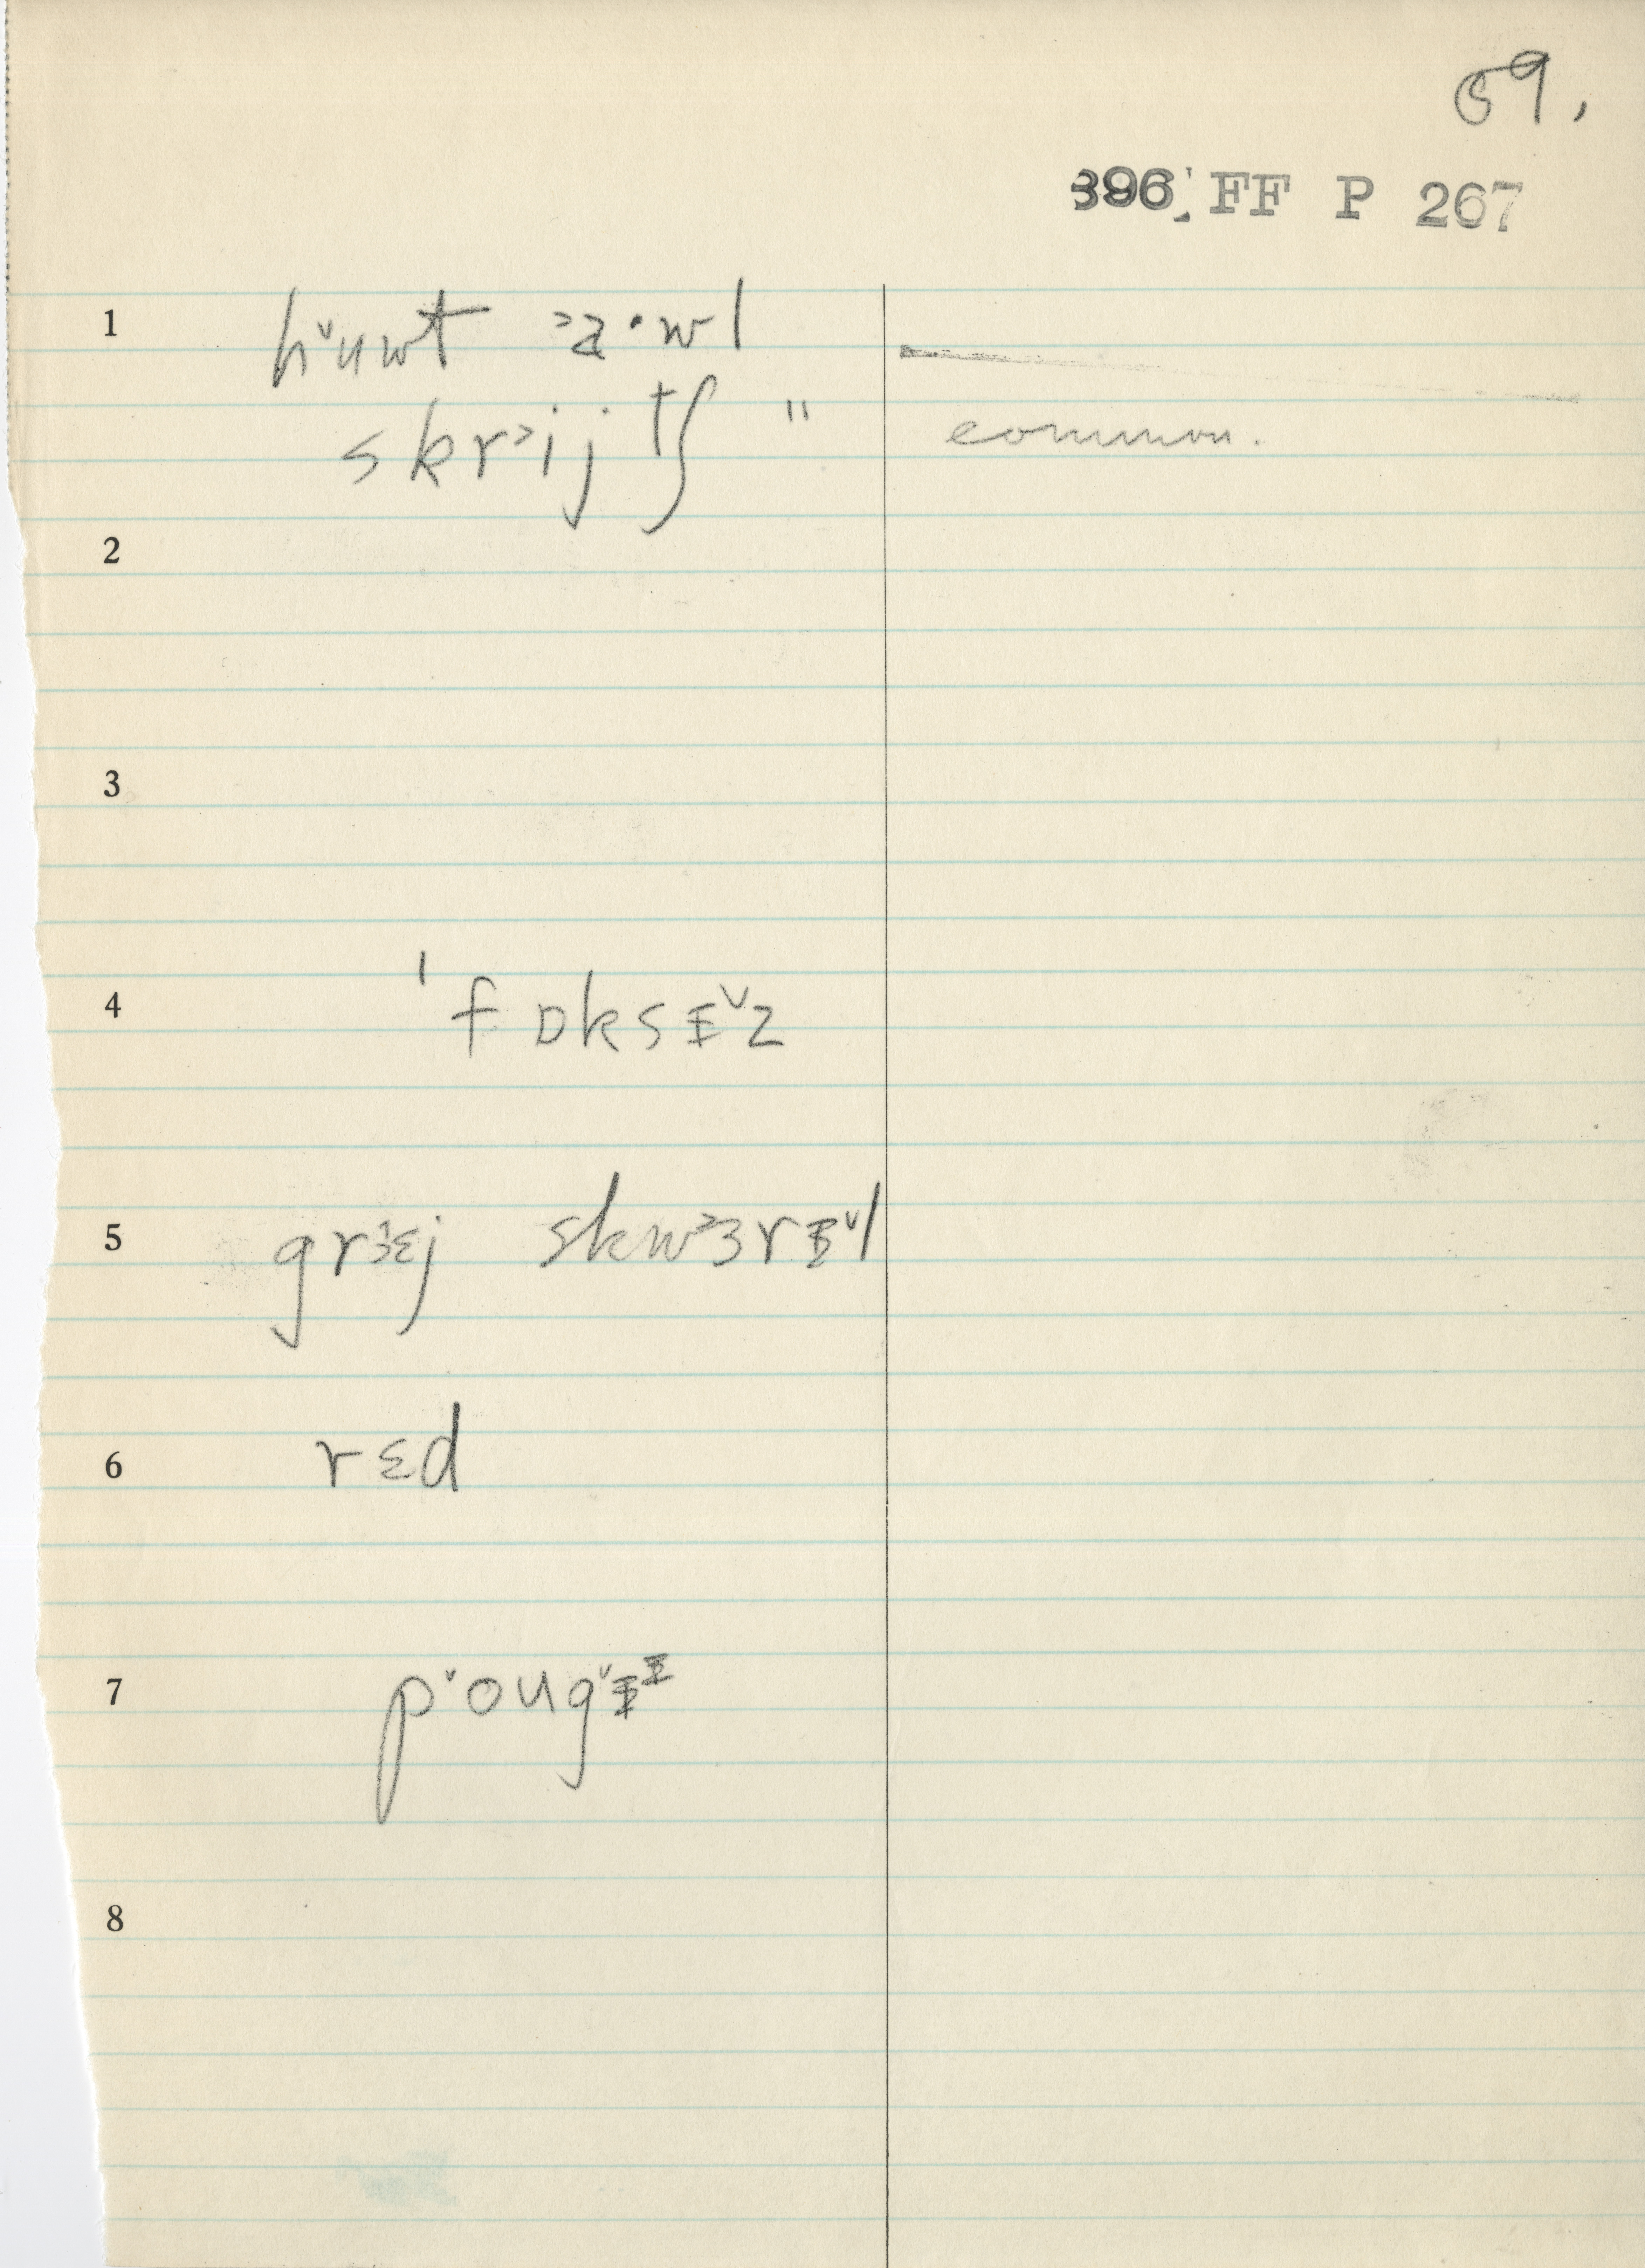 59.
396 FF P 267
1 h˅uwt ˃a·wl
skr˃ijtʃ " common.
2
3
4 ˈfɒksɪ˅z
5 gr˃ɛj skw˃ɜrɪ˅l
6 rɛd
7 p˅oug˅ɪɪ
8